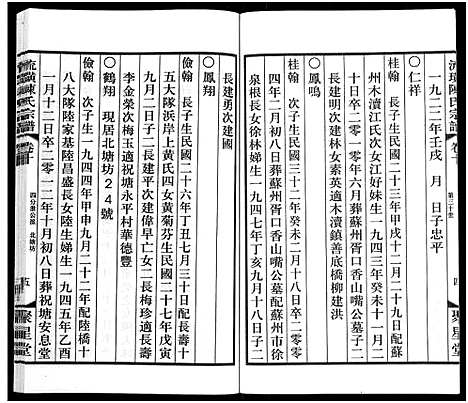 流璜陳氏宗譜
一九二二年壬戌 月 日子忠平
第三十世
四
聚星堂
〇仁祥
桂翰 長子生民國二十三年甲戌十二月十九日配蘇
州木瀆江氏次女江好妹生一九四三年癸未十一月
二十日卒二〇一〇年十月初八日葬蘇州胥口香山嘴公墓子二
長建明次建林女素英適木瀆張橋柳建洪
〇鳳鳴
桂翰 長子生民國三十二年癸未二月初一日卒二〇〇
四年二月初三日葬蘇州胥口香山嘴公墓配蘇州市徐
泉根長女徐林娣生一九四七年丁亥九月十八日子二
長建勇次建國
〇鳳翔
儉翰 長子生民國二十六年丁丑七月三十日配長壽
五大隊浜岸上黃氏四女黃菊芬生民國二十七年戊寅
九月二日子二長建平次建偉早亡女二長梅珍適長壽
李金榮次梅玉適祝塘永平村華德豐
〇鶴翔 現居北塘坊24號
儉翰 次子生一九四四年甲申九月二十二日配陸橋十
八大隊陸家基陸昌盛長女陸生娣生一九四五年乙酉
一月十二日卒二〇一二年十月初八日葬祝塘安息堂
流璜陳氏宗譜
卷十
四分港公派 北塘坊
五
聚星堂